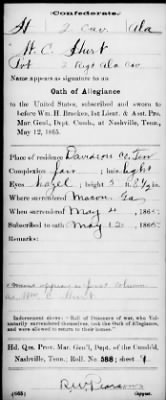 Confederate.
H 2 Cav. Ala
W. C. Hurt
Pvt 2 Regt Ala Cav
Name appears as signature to an
Oath of Allegiance
to the United States, subscribed and sworn to
before Wm. H. Bracken, 1st Lieut. & Asst. Pro.
Mar. Genl., Dept. Cumb., at Nashville, Tenn.,
May 12, 1865.
Place of residence Davidson Co. Ten
Complexion fair ; hair light
Eyes hazel ; height 5 ft. 8 1/2 in.
Where surrendered Macon, Ga
When surrendered May 1865.
Subscribed to oath May 12 1865.
Remarks:
name appears in first column
as Wm C. Hurt
Indorsement shows: "Roll of Prisoners of war, who Vol-
untarily surrendered themselves, took the Oath of Allegiance,
and were allowed to return to their homes."
Hd. Qrs. Prov. Mar. Gen'l, Dept. of the Cumb'd,
Nashville, Tenn.; Roll No. 588; sheet
(665) Copyist.